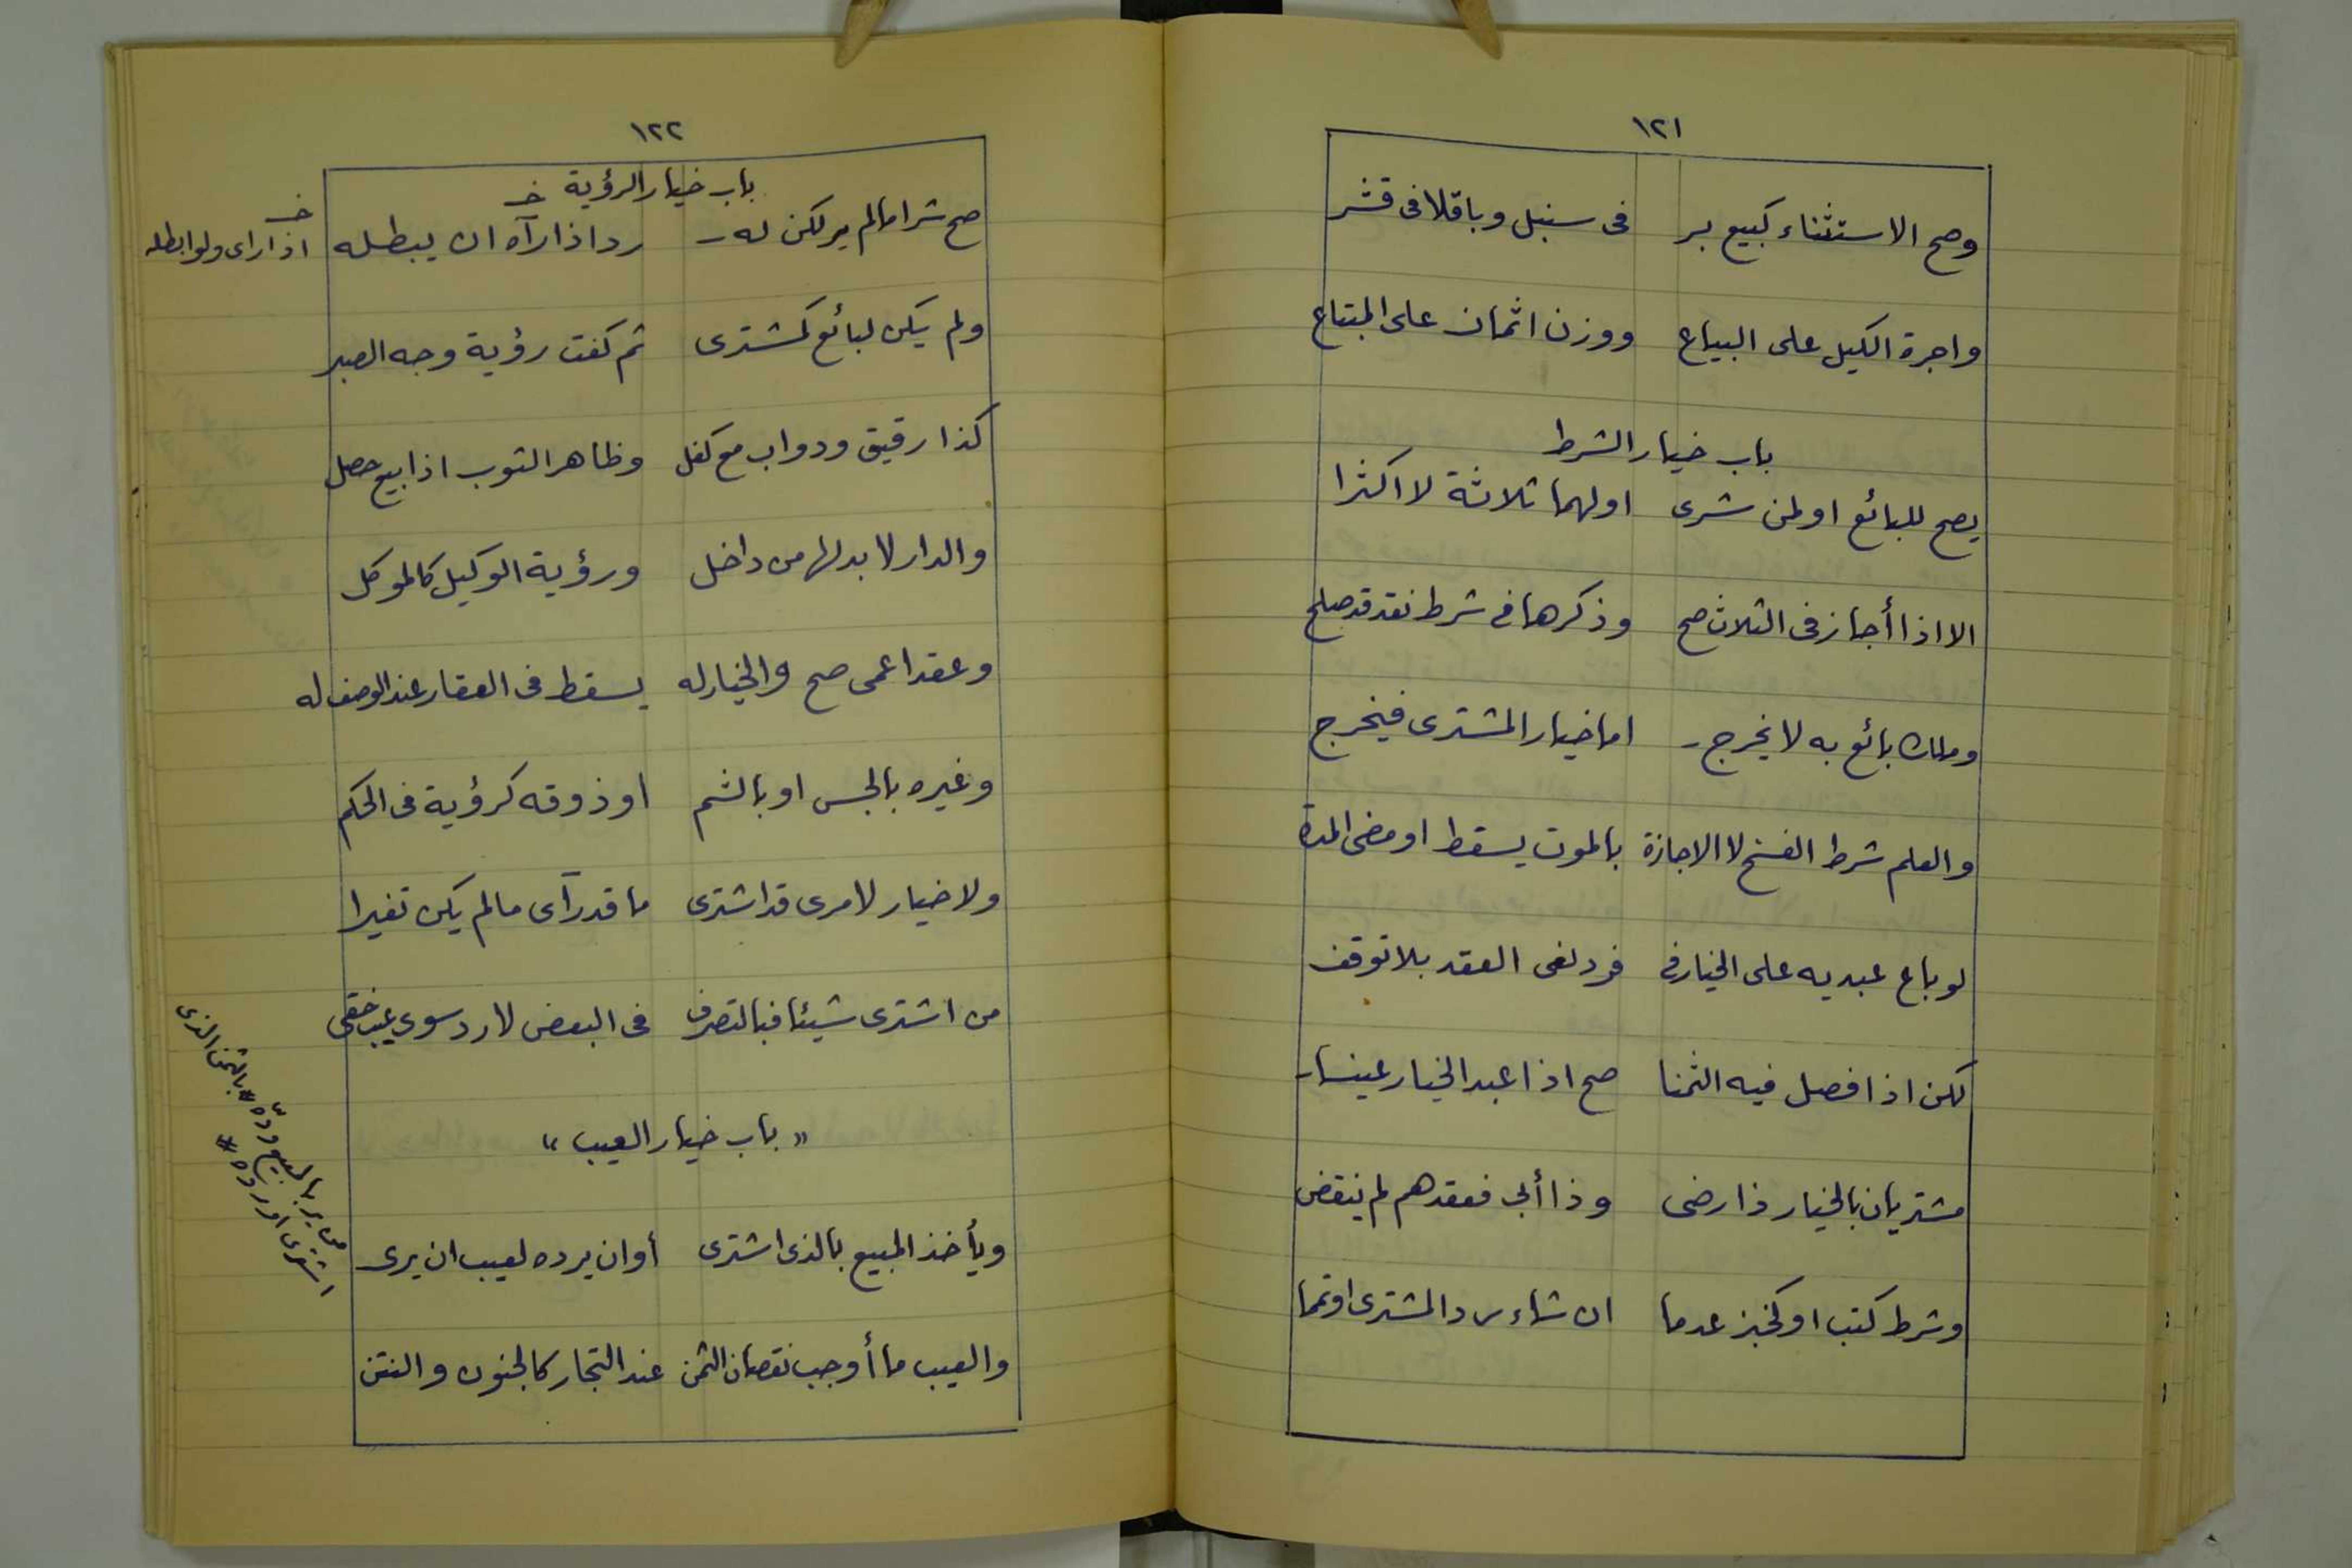 ١٢١
وصح الاستثناء كبيع بر في سنبل وباقلا في قشر
واجرة الكيل على البياع ووزن اثمان على المبتاع
باب خيار الشرط
يصح للبائع او لمن شرى او لهما ثلاثة لا اكثرا
الا اذا أجاز في الثلاث صح وذكرها في شرط نقد قد صلح
وملك بائع به لا يخرج اما خيار المشترى فيخرج
والعلم شرط الفسخ لا الاجازة بالموت يسقط او مضى المدة
لو باع عبديه على الخيار في فرد نفى العقد بلا توقف
لكن اذا فصل فيه الثمنا صح اذا عبد الخيار عينا
مشتريان بالخيار ذا رضى وذا أبى فعقدهم لم ينقض
وشرط كتب او كخبز عدما ان شاء رد المشترى او تمما
١٢٢
باب خيار الرؤية
صح شرا ما لم ير لكن له رد اذا رآه ان يبطله
خـ
خـ اذا راى ولو ابطله
ولم يكن لبائع كمشترى ثم كفت رؤية وجه الصبر
كذا رقيق ودواب مع كفل وظاهر الثوب اذا بيع حصل
والدار لا بد لها من داخل ورؤية الوكيل كالموكل
وعقد اعمى صح والخيار له يسقط في العقار عند الوصف له
وغيره بالجس او بالشم او ذوقه كرؤية في الحكم
ولا خيار لامرى قد اشترى ما قد رآى ما لم يكن تغيرا
من اشترى شيئا فبالتصرف في البعض لا رد سوى عيب خفى
« باب خيار العيب »
ويأخذ المبيع بالذى اشترى أو ان يرده لعيب ان يرى
والعيب ما أوجب نقصان الثمن عند التجار كالجنون والنتن
من ير بالمبيع رده # بالثمن الذى
اشترى او رده #